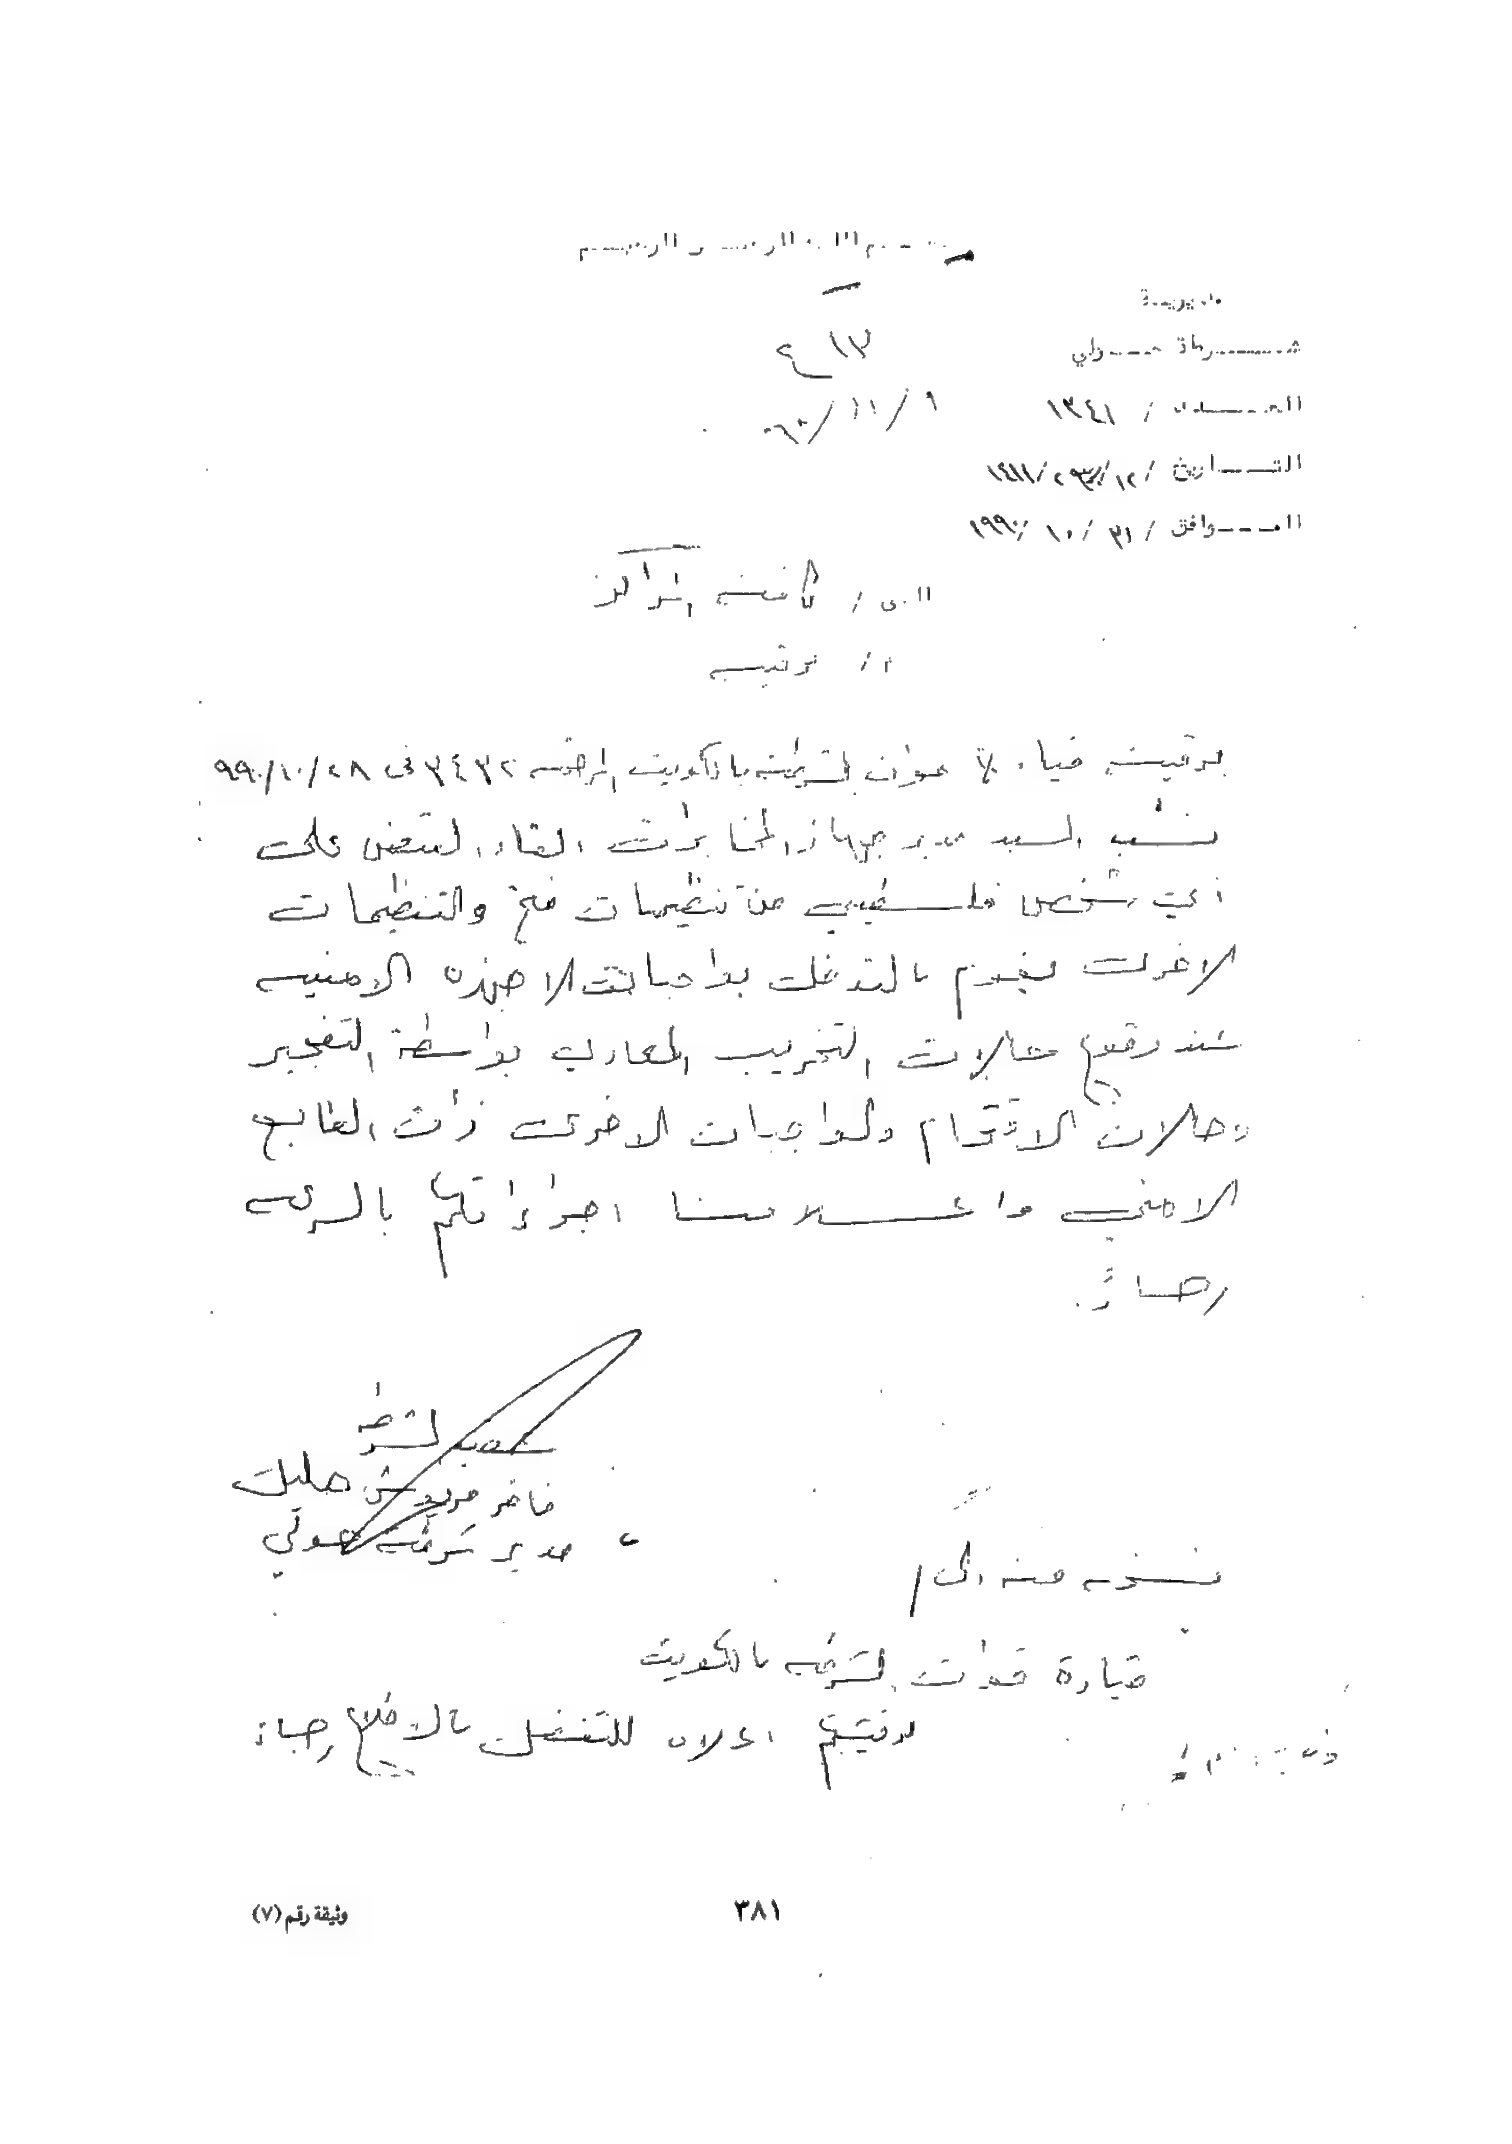 بسم الله الرحمن الرحيم
مديرية
شرطة حولي
١٣
العدد / ١٣٤١
٩ / ١١ /
التاريخ / ١٢ / / ١٤١١
الموافق / ٣١ / ١٠ / ١٩٩٠
الى / كافة المراكز
م / برقية
برقية قيادة قوات الشرطة بالكويت المرقمة ٣٤٣٢ في ٢٨/١٠/٩٩٠
نسب السيد مدير جهاز المخابرات القاء القبض على
اي شخص فلسطيني من تنظيمات فتح والتنظيمات
الاخرى يقوم بالتدخل بواجبات الاجهزه الامنيه
عند وقوع حالات التخريب المعادي بواسطة التفجير
وحالات الاقتحام والواجبات الاخرى ذات الطابع
الامني واعلامنا اجراءاتكم بالسرعه
رجاءً.
عميد الشرطه
مدير شرطة حولي
نسخه منه الى /
قيادة قوات الشرطه بالكويت
برقيتكم اعلاه للتفضل بالاطلاع رجاءً
٣٨١
وثيقة رقم (٧)